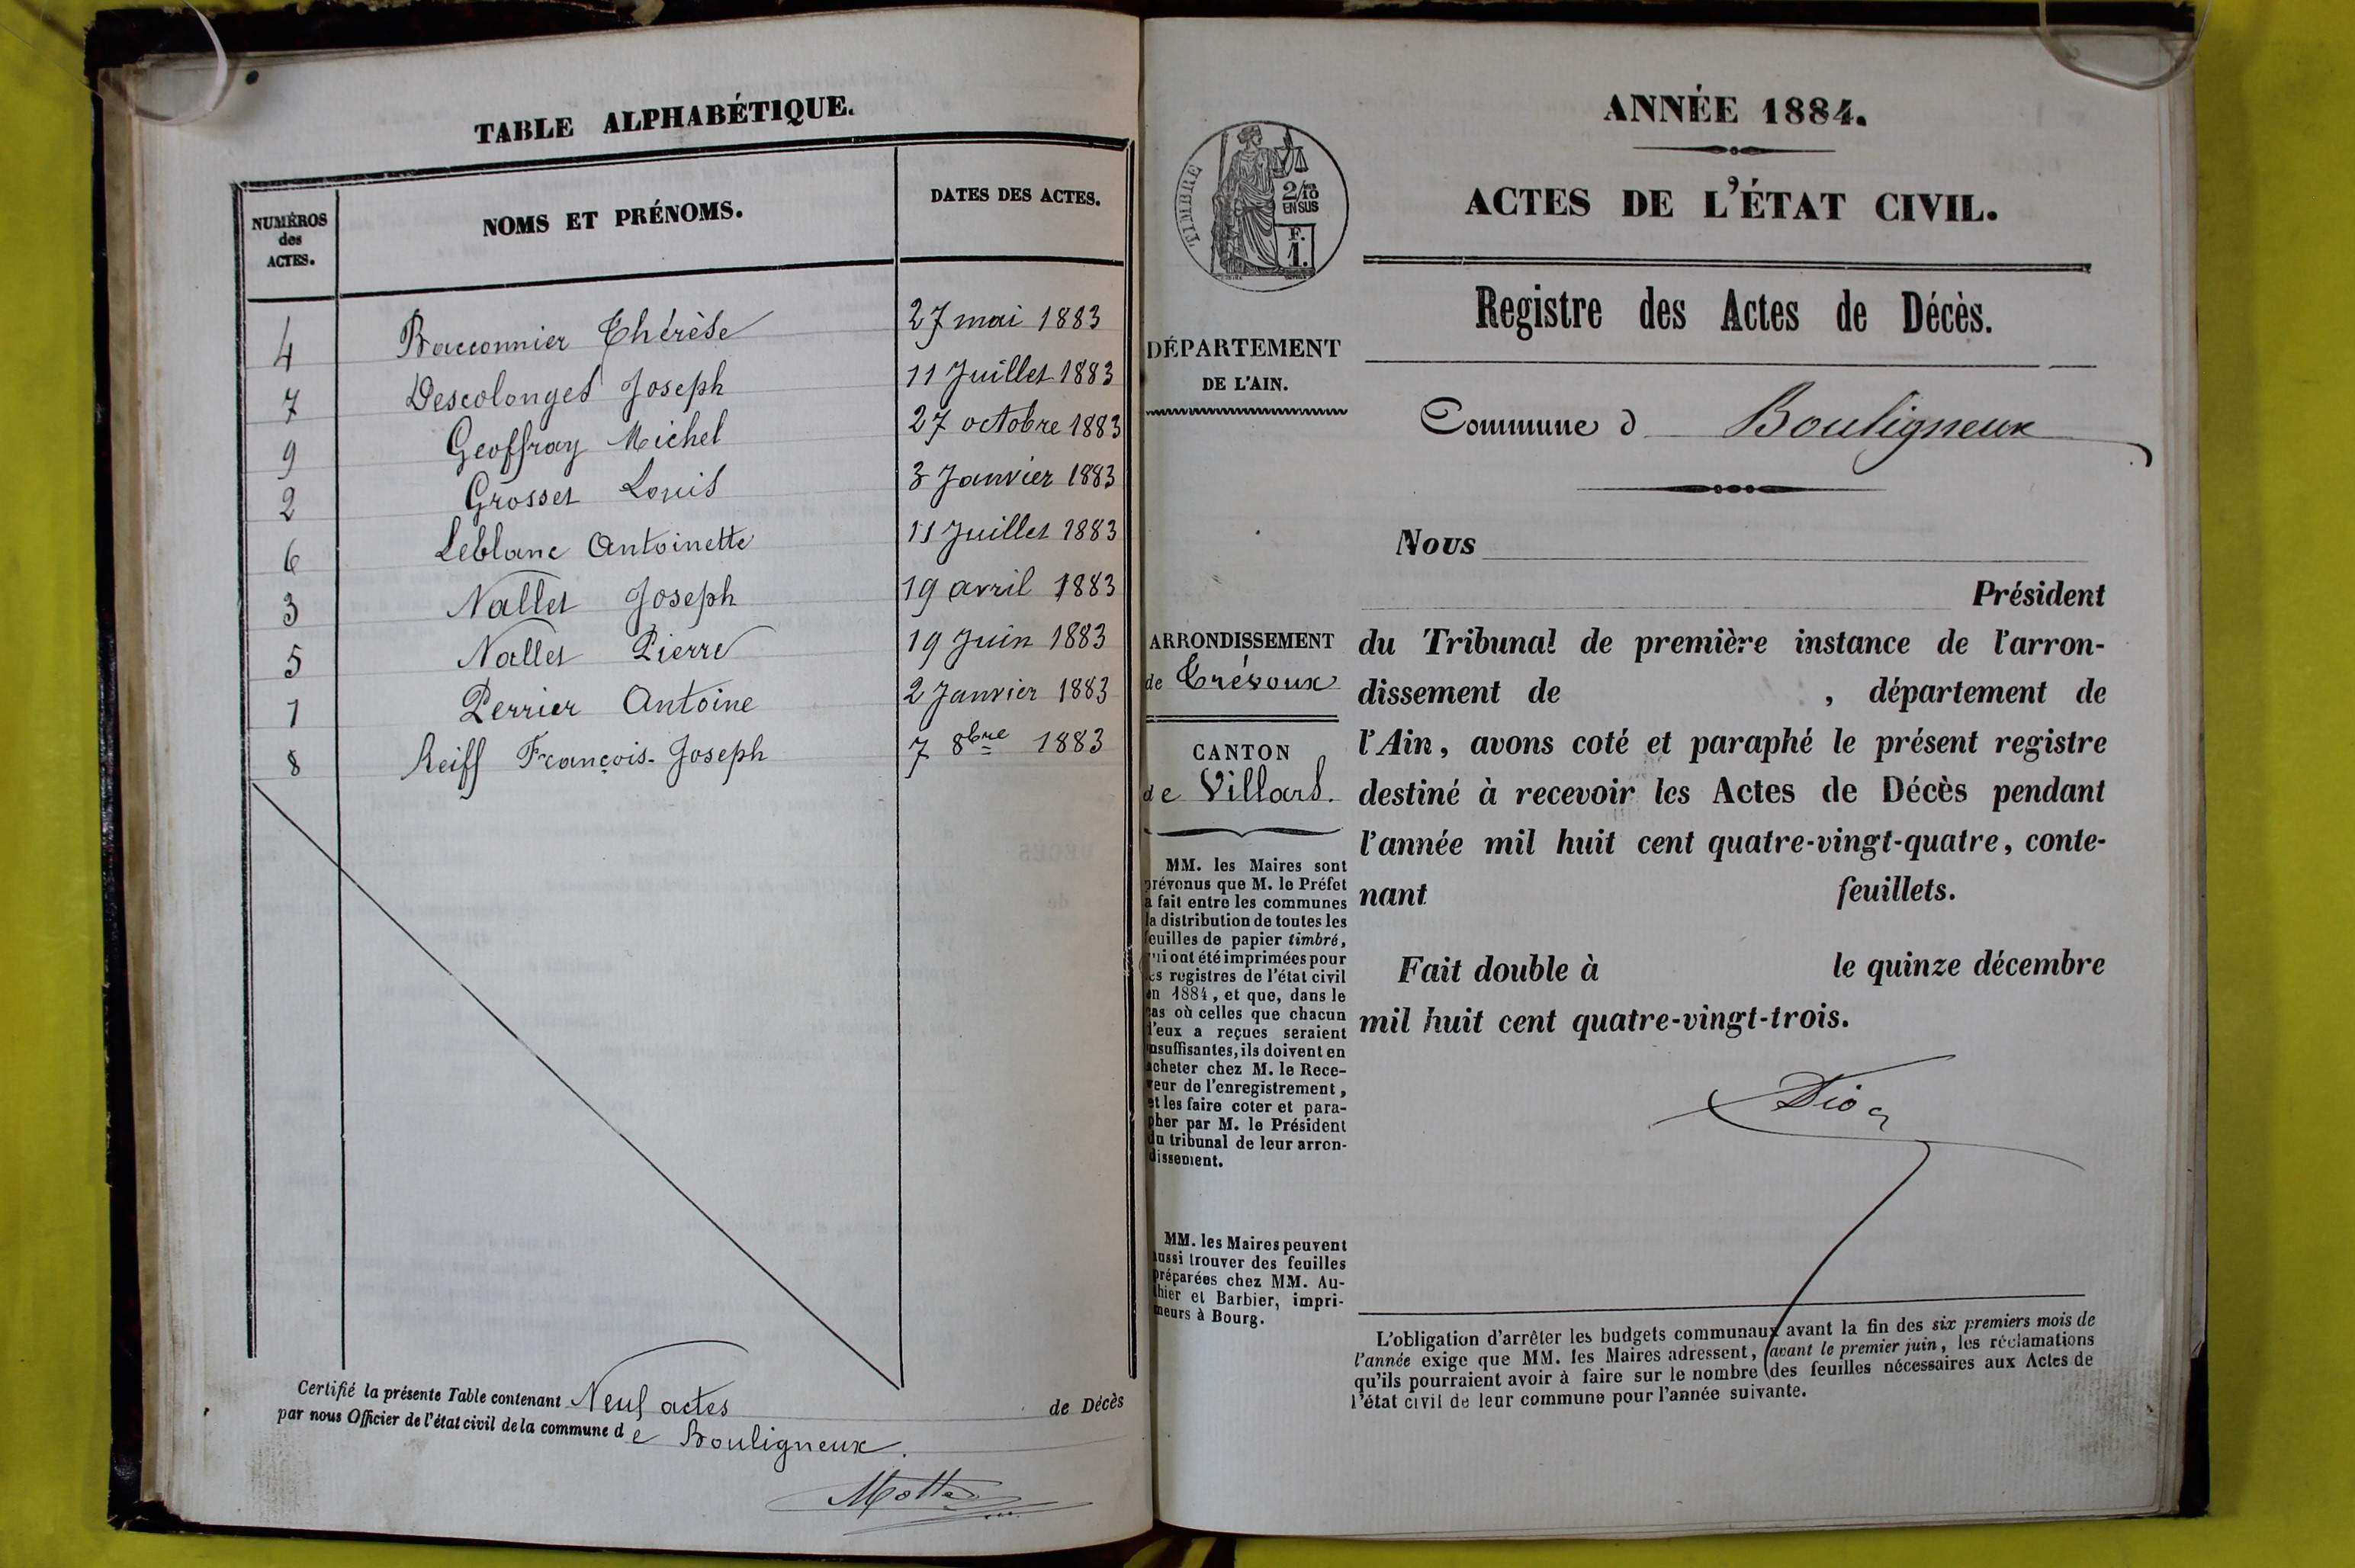 TABLE ALPHABÉTIQUE.
NUMÉROS des ACTES.
NOMS ET PRÉNOMS.
DATES DES ACTES.
4 Bacconnier Thérèse 27 mai 1883
7 Descolonges Joseph 11 Juillet 1883
9 Geoffray Michel 27 octobre 1883
2 Grosset Louis 3 Janvier 1883
6 Leblanc Antoinette 11 Juillet 1883
3 Nallet Joseph 19 avril 1883
5 Nallet Pierre 19 Juin 1883
1 Perrier Antoine 2 Janvier 1883
8 Reiff François-Joseph 7 8bre 1883
Certifié la présente Table contenant Neuf actes de Décès
par nous Officier de l'état civil de la commune de Bouligneux.
ANNÉE 1884.
ACTES DE L'ÉTAT CIVIL.
TIMBRE
2/10
EN SUS
F.
1.
Registre des Actes de Décès.
DÉPARTEMENT
DE L'AIN.
Commune d Bouligneux
Nous
Président
du Tribunal de première instance de l'arron-
dissement de , département de
l'Ain, avons coté et paraphé le présent registre
destiné à recevoir les Actes de Décès pendant
l'année mil huit cent quatre-vingt-quatre, conte-
nant feuillets.
Fait double à le quinze décembre
mil huit cent quatre-vingt-trois.
ARRONDISSEMENT
de Trévoux
CANTON
de Villars.
MM. les Maires sont
prévenus que M. le Préfet
a fait entre les communes
la distribution de toutes les
feuilles de papier timbré,
qui ont été imprimées pour
les registres de l'état civil
en 1884, et que, dans le
cas où celles que chacun
d'eux a reçues seraient
insuffisantes, ils doivent en
acheter chez M. le Rece-
veur de l'enregistrement,
et les faire coter et para-
pher par M. le Président
du tribunal de leur arron-
dissement.
MM. les Maires peuvent
aussi trouver des feuilles
préparées chez MM. Au-
thier et Barbier, impri-
meurs à Bourg.
L'obligation d'arrêter les budgets communaux avant la fin des six premiers mois de
l'année exige que MM. les Maires adressent, avant le premier juin, les réclamations
qu'ils pourraient avoir à faire sur le nombre des feuilles nécessaires aux Actes de
l'état civil de leur commune pour l'année suivante.